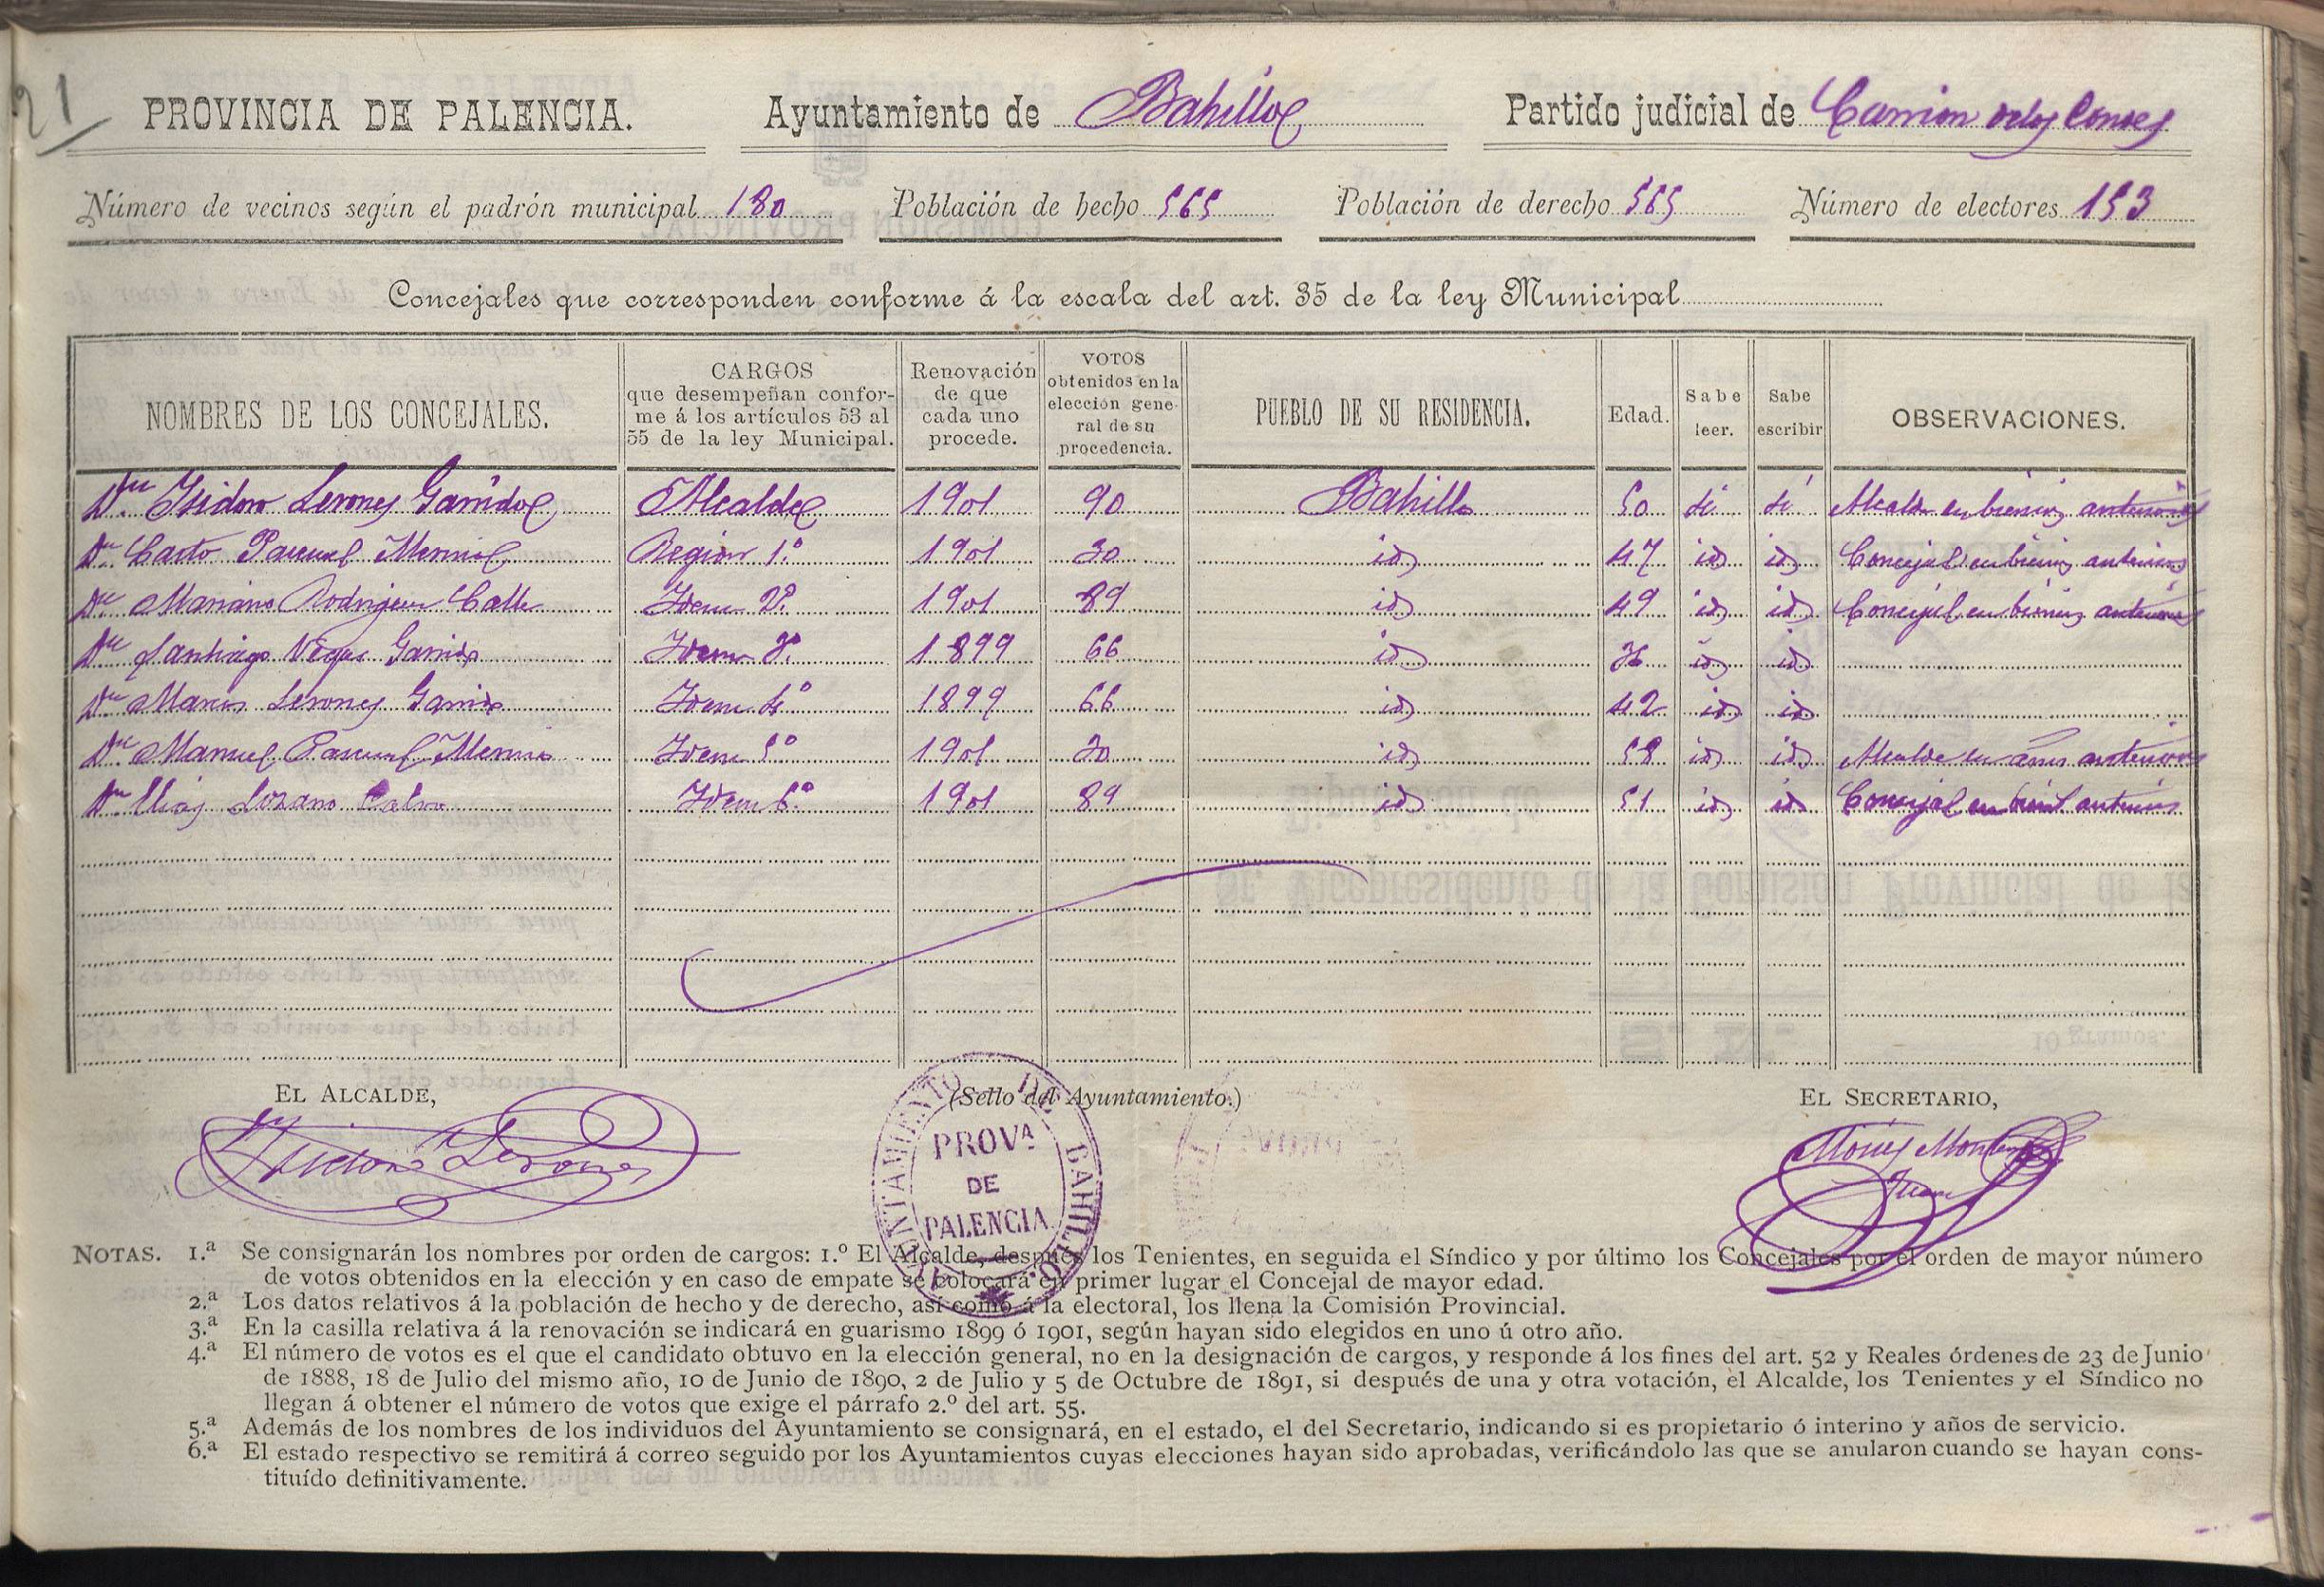 21
PROVINCIA DE PALENCIA. Ayuntamiento de Bahillo Partido judicial de Carrion de los Condes
Número de vecinos según el padrón municipal 180 Población de hecho 565 Población de derecho 565 Número de electores 153
Concejales que corresponden conforme á la escala del art. 35 de la ley Municipal
NOMBRES DE LOS CONCEJALES. CARGOS que desempeñan conforme á los artículos 53 al 55 de la ley Municipal. Renovación de que cada uno procede. VOTOS obtenidos en la elección general de su procedencia. PUEBLO DE SU RESIDENCIA. Edad. Sabe leer. Sabe escribir OBSERVACIONES.
Dn. Isidoro Lerones Garrido Alcalde 1901 90 Bahillo 50 si si Alcalde en bienios anteriores
Dn Casto Pascual Merino Regidor 1.º 1901 30 id 47 id id Concejal en bienios anteriores
Dn Mariano Rodriguez Calle Idem 2.º 1901 89 id 49 id id Concejal en bienios anteriores
Dn Santiago Garrido Idem 3.º 1899 66 id 36 id id
Dn Lerones Garrido Idem 4º 1899 66 id 42 id id
Dn Manuel Pascual Merino Idem 5º 1901 30 id 58 id id Alcalde en años anteriores
Dn Elias Lozano Idem 6º 1901 89 id 51 id id Concejal en
EL ALCALDE, (Sello del Ayuntamiento.) EL SECRETARIO,
Isidoro Lerones
AYUNTAMIENTO DE BAHILLO
PROVA
DE
PALENCIA
NOTAS. 1.ª Se consignarán los nombres por orden de cargos: 1.º El Alcalde, después los Tenientes, en seguida el Síndico y por último los Concejales por el orden de mayor número
de votos obtenidos en la elección y en caso de empate se colocará en primer lugar el Concejal de mayor edad.
2.ª Los datos relativos á la población de hecho y de derecho, así como á la electoral, los llena la Comisión Provincial.
3.ª En la casilla relativa á la renovación se indicará en guarismo 1899 ó 1901, según hayan sido elegidos en uno ú otro año.
4.ª El número de votos es el que el candidato obtuvo en la elección general, no en la designación de cargos, y responde á los fines del art. 52 y Reales órdenes de 23 de Junio
de 1888, 18 de Julio del mismo año, 10 de Junio de 1890, 2 de Julio y 5 de Octubre de 1891, si después de una y otra votación, el Alcalde, los Tenientes y el Síndico no
llegan á obtener el número de votos que exige el párrafo 2.º del art. 55.
5.ª Además de los nombres de los individuos del Ayuntamiento se consignará, en el estado, el del Secretario, indicando si es propietario ó interino y años de servicio.
6.ª El estado respectivo se remitirá á correo seguido por los Ayuntamientos cuyas elecciones hayan sido aprobadas, verificándolo las que se anularon cuando se hayan cons-
tituído definitivamente.